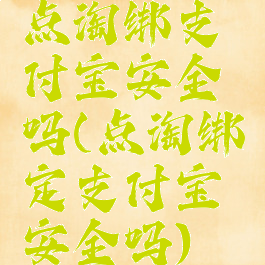 点淘绑支
付宝安全
吗(点淘绑
定支付宝
安全吗)